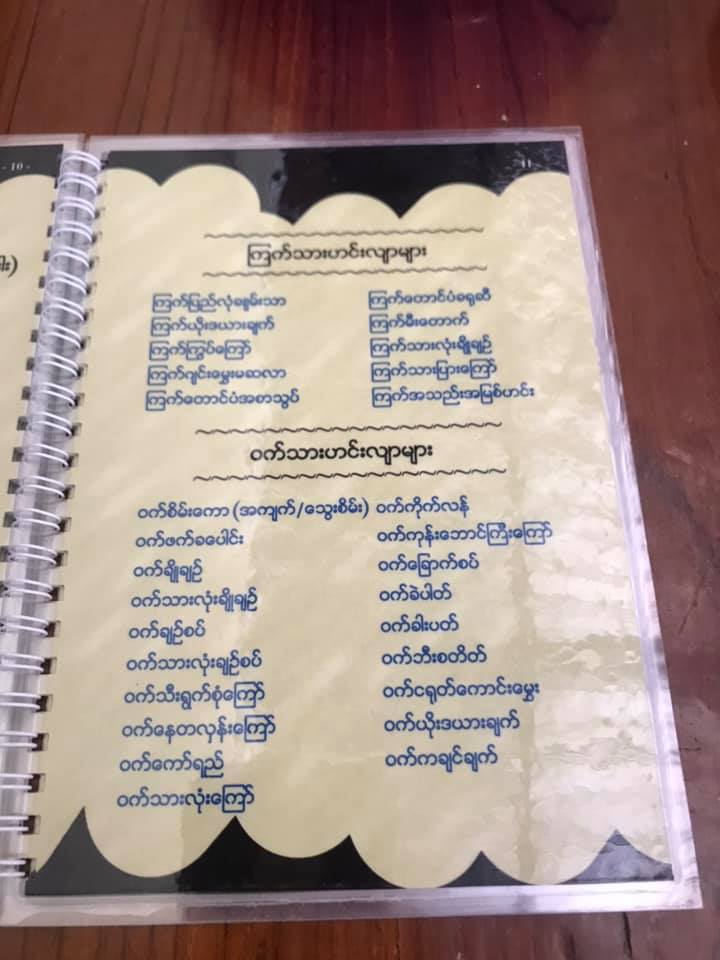 - 10 -
11
ကြက်သားဟင်းလျာများ
ကြက်ပြည်လုံချမ်းသာ
ကြက်တောင်ပံခရုဆီ
ကြက်ယိုးဒယားချက်
ကြက်မီးတောက်
ကြက်ကြွပ်ကြော်
ကြက်သားလုံးချိုချဉ်
ကြက်ဂျင်းမွှေးမဆလာ
ကြက်သားပြားကြော်
ကြက်တောင်ပံအစာသွပ်
ကြက်အသည်းအမြစ်ဟင်း
ဝက်သားဟင်းလျာများ
ဝက်စိမ်းကော (အကျက်/သွေးစိမ်း) ဝက်ကိုက်လန်
ဝက်ဖက်ခပေါင်း
ဝက်ကုန်းဘောင်ကြီးကြော်
ဝက်ချိုချဉ်
ဝက်ခြောက်စပ်
ဝက်သားလုံးချိုချဉ်
ဝက်ခဲပါတ်
ဝက်ချဉ်စပ်
ဝက်ခါးပတ်
ဝက်သားလုံးချဉ်စပ်
ဝက်ဘီးစတိတ်
ဝက်သီးရွက်စုံကြော်
ဝက်ငရုတ်ကောင်းမွှေး
ဝက်နေတလှန်းကြော်
ဝက်ယိုးဒယားချက်
ဝက်ကော်ရည်
ဝက်ကချင်ချက်
ဝက်သားလုံးကြော်